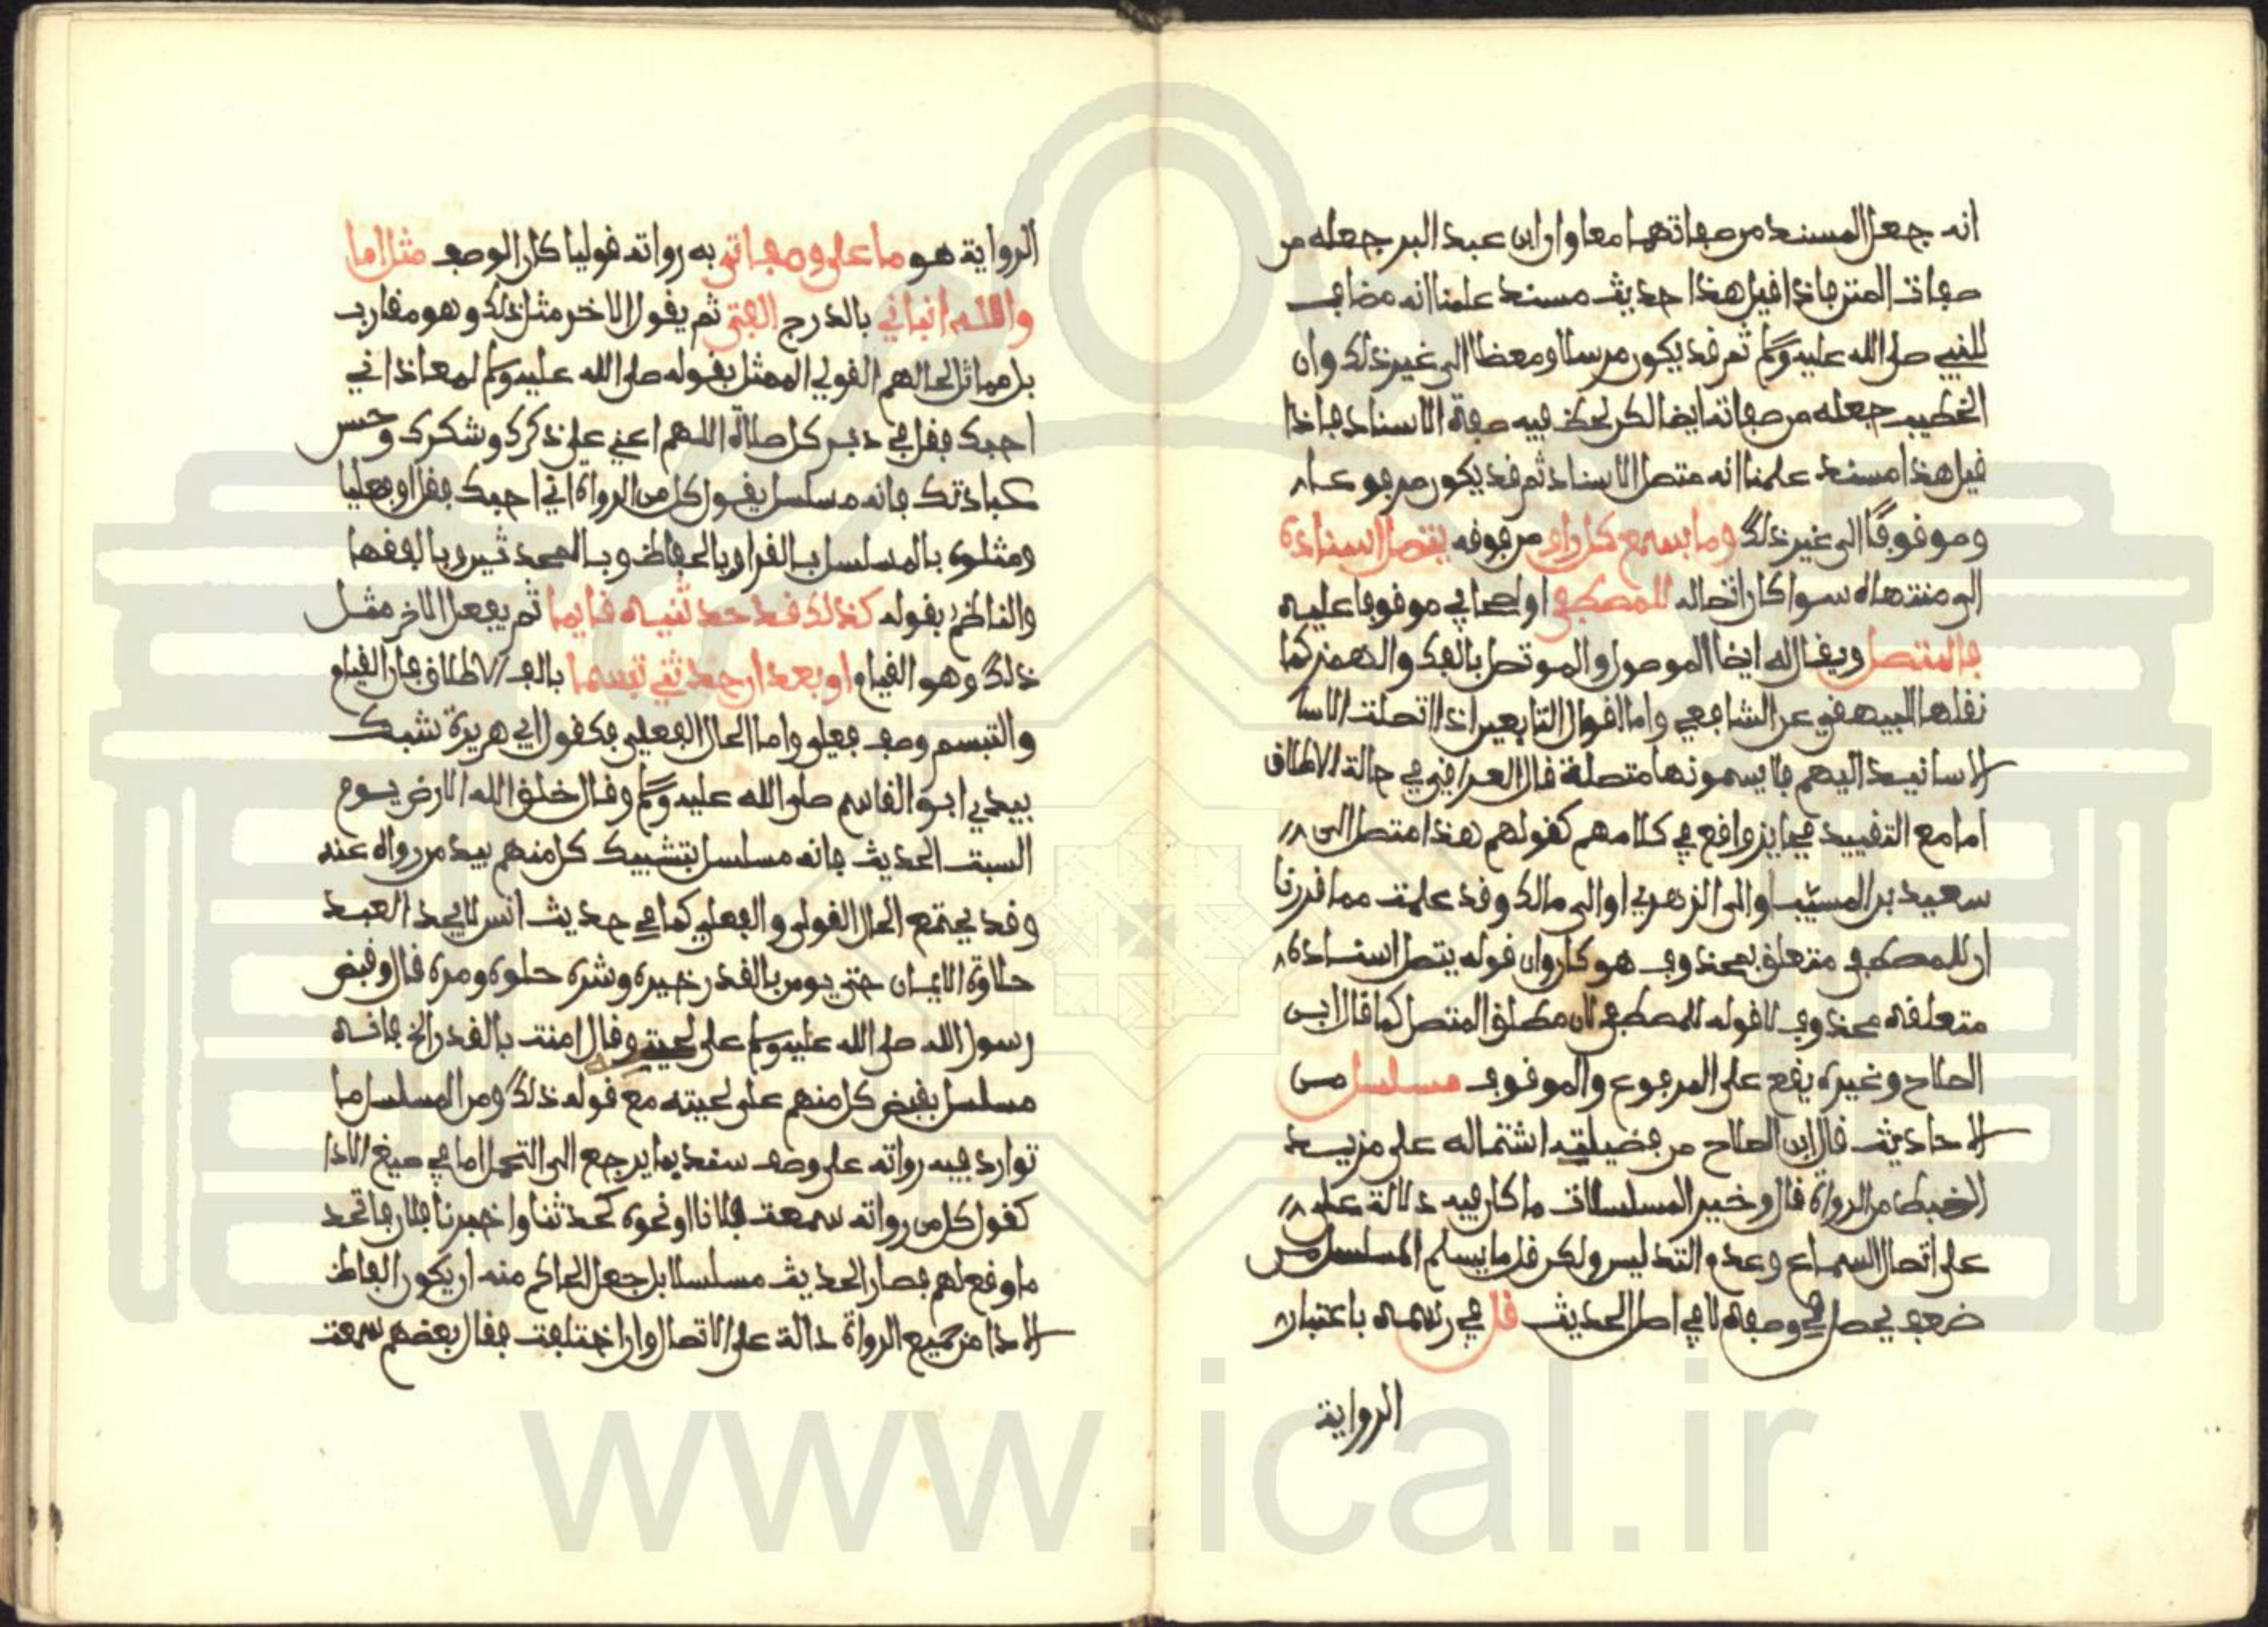 انه جعل المسند من صفاتهما معا وان ابن عبد البر جعله من
صفات المتن فاذا قيل هذا حديث مسند علمنا انه مضاف
للنبي صلى الله عليه وسلم ثم قد يكون مرسلا ومعضلا الى غير ذلك وان
الخطيب جعله من صفاته ايضا لكن لحظ فيه صفة الاسناد فاذا
قيل هذا مسند علمنا انه متصل الاسناد ثم قد يكون مرفوعا
وموقوفا الى غير ذلك وما بسمع كل راو من فوقه يتصل اسناده
الى منتهاه سوا كان اتصاله للمصطفى او لصحابي موقوفا عليه
فالمتصل ويقال له ايضا الموصول والموتصل بالفك والهمز كما
نقلها البيهقي عن الشافعي واما اقوال التابعين اذا اتصلت الاسا
الاسانيد اليهم فلا يسمونها متصلة قال العراقي في حالة الاطلاق
اما مع التقييد فجايز واقع في كلامهم كقولهم هذا متصل الى
سعيد بن المسيب او الى الزهري او الى مالك وقد علمت مما قررنا
ان للمصطفى متعلق بمحذوف هو كان وان قوله يتصل اسناده
متعلقه محذوف لا قوله للمصطفى لان مطلق المتصل كما قال ابن
الصلاح وغيره يقع على المرفوع والموقوف مسلسل من
الاحاديث قال ابن الصلاح من فضيلته اشتماله على مزيد
الضبط من الرواة قال وخير المسلسلات ما كان فيه دلالة على
على اتصال السماع وعدم التدليس ولكن قل ما يسلم المسلسل من
ضعف يحصل في وصفه لا في اصل الحديث قل في رسمه باعتبار
الرواية
الرواية هو ما على وصف اتى به رواته قوليا كان الوصف مثل اما
والله انباني بالدرج الفتى ثم يقول الاخر مثل ذلك وهو مقارب
بل مماثل لحالهم القولي الممثل بقوله صلى الله عليه وسلم لمعاذ اني
احبك فقل في دبر كل صلاة اللهم اعني على ذكرك وشكرك وحسن
عبادتك فانه مسلسل بقول كل من الرواة اني احبك فقل او فعليا
ومثلوه بالمسلسل بالقرا وبالحفاظ وبالمحدثين وبالفقها
والناظم بقوله كذاك قد حدثنيه قايما ثم يفعل الاخر مثل
ذلك وهو القيام او بعد ان حدثني تبسما بالف الاطلاق فان القيام
والتبسم وصف فعلي واما الحال الفعلي فكقول ابي هريرة شبك
بيدي ابو القاسم صلى الله عليه وسلم وقال خلق الله الارض يوم
السبت الحديث فانه مسلسل بتشبيك كل منهم بيد من رواه عنه
وقد يجتمع الحال القولي والفعلي كما في حديث انس لا يجد العبد
حلاوة الايمان حتى يومن بالقدر خيره وشره حلوه ومره قال وقبض
رسول الله صلى الله عليه وسلم على لحيته وقال امنت بالقدر الخ فانه
مسلسل بقبض كل منهم على لحيته مع قوله ذلك ومن المسلسل ما
توارد فيه رواته على وصف سند بما يرجع الى التحمل اما في صيغ الادا
كقول كل من رواته سمعت فلانا او نحوه كحدثنا واخبرنا فلان فاتحد
ما وقع لهم فصار الحديث مسلسلا بل جعل الحاكم منه ان يكون الفاظ
الادا من جميع الرواة دالة على الاتصال وان اختلفت فقال بعضهم سمعت
www.ical.ir